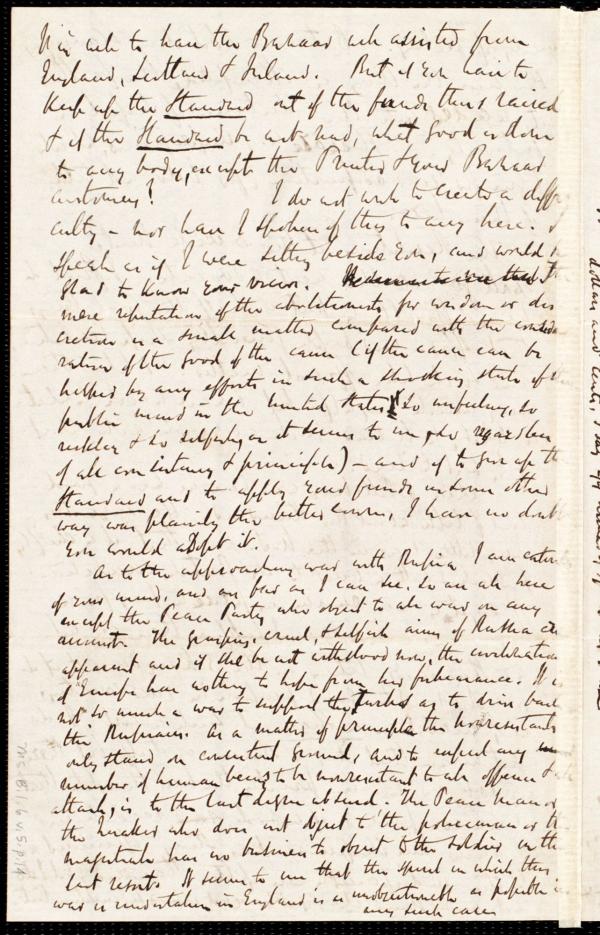 to have the Bazaar well assisted from
England, Scotland & Ireland. But if you have to
keep up the Standard out of the funds thus raised
& if the Standard be not read, what good is done
to any body, except the Printer & your Bazaar
customers? I do not wish to create a diffi
culty – nor have I spoken of this to any here. I
speak as if I were sitting beside you, and would be
glad to know your views. The
mere reputation of the abolitionists for wisdom or dis
cretion is a small matter compared with the conside
ration of the good of the cause (if the cause can be
helped by any efforts in such a shocking state of the
public mind in the United States, so unfeeling, so
reckless & so selfish, as it seems to me, & so regardless
of all consistency & principle) – and if to give up the
Standard and to apply your funds in some other
way was plainly the better course, I have no doubt
you would adopt it.
As to the approaching war with Russia I am
of your mind, and as far as I can see, so are all here
except the Peace Party who object to all war on any
account. The grasping, cruel, & selfish aims of Russia are
apparent and if she be not withstood now, the
of Europe has nothing to hope from her forbearance. It is
not so much a war to support the Turks as to drive back
the Russians. As a matter of principle the nonresistants
only stand on consistent ground, and to expect any
number of human beings to be nonresistant to all offence &
attack, is to the last degree absurd. The Peace man or
the Quaker who does not object to the policeman or the
magistrate has no business to object to the soldier in the
last resort. It seems to me that the spirit in which this
war is undertaken in England is as unobjectionable as possible in
any such case
dollars and cents, I say
Ms. B.1.6 v.5 p.14